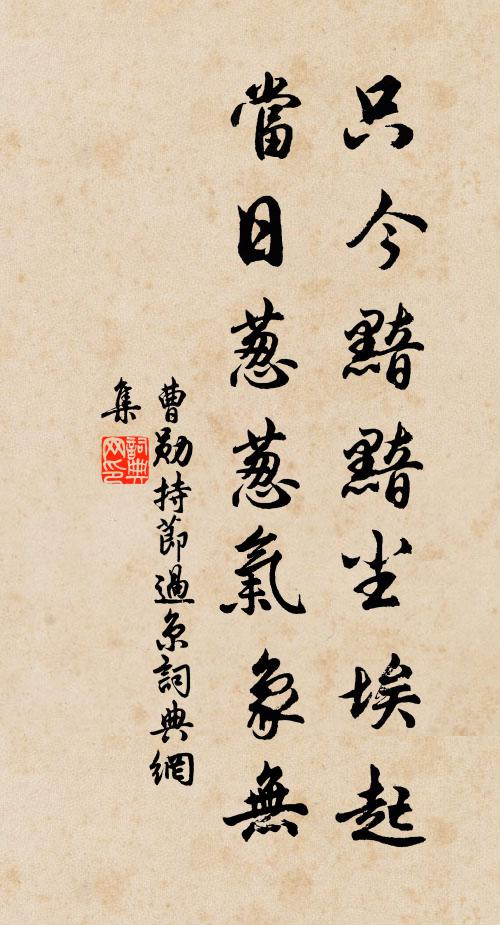 只今黯黯尘埃起
當日葱葱氣象無
曹勛持節過京詞典網
集
詞典
网印